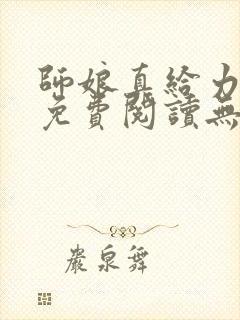 師娘直給力
免費閱讀無
嚴泉舞